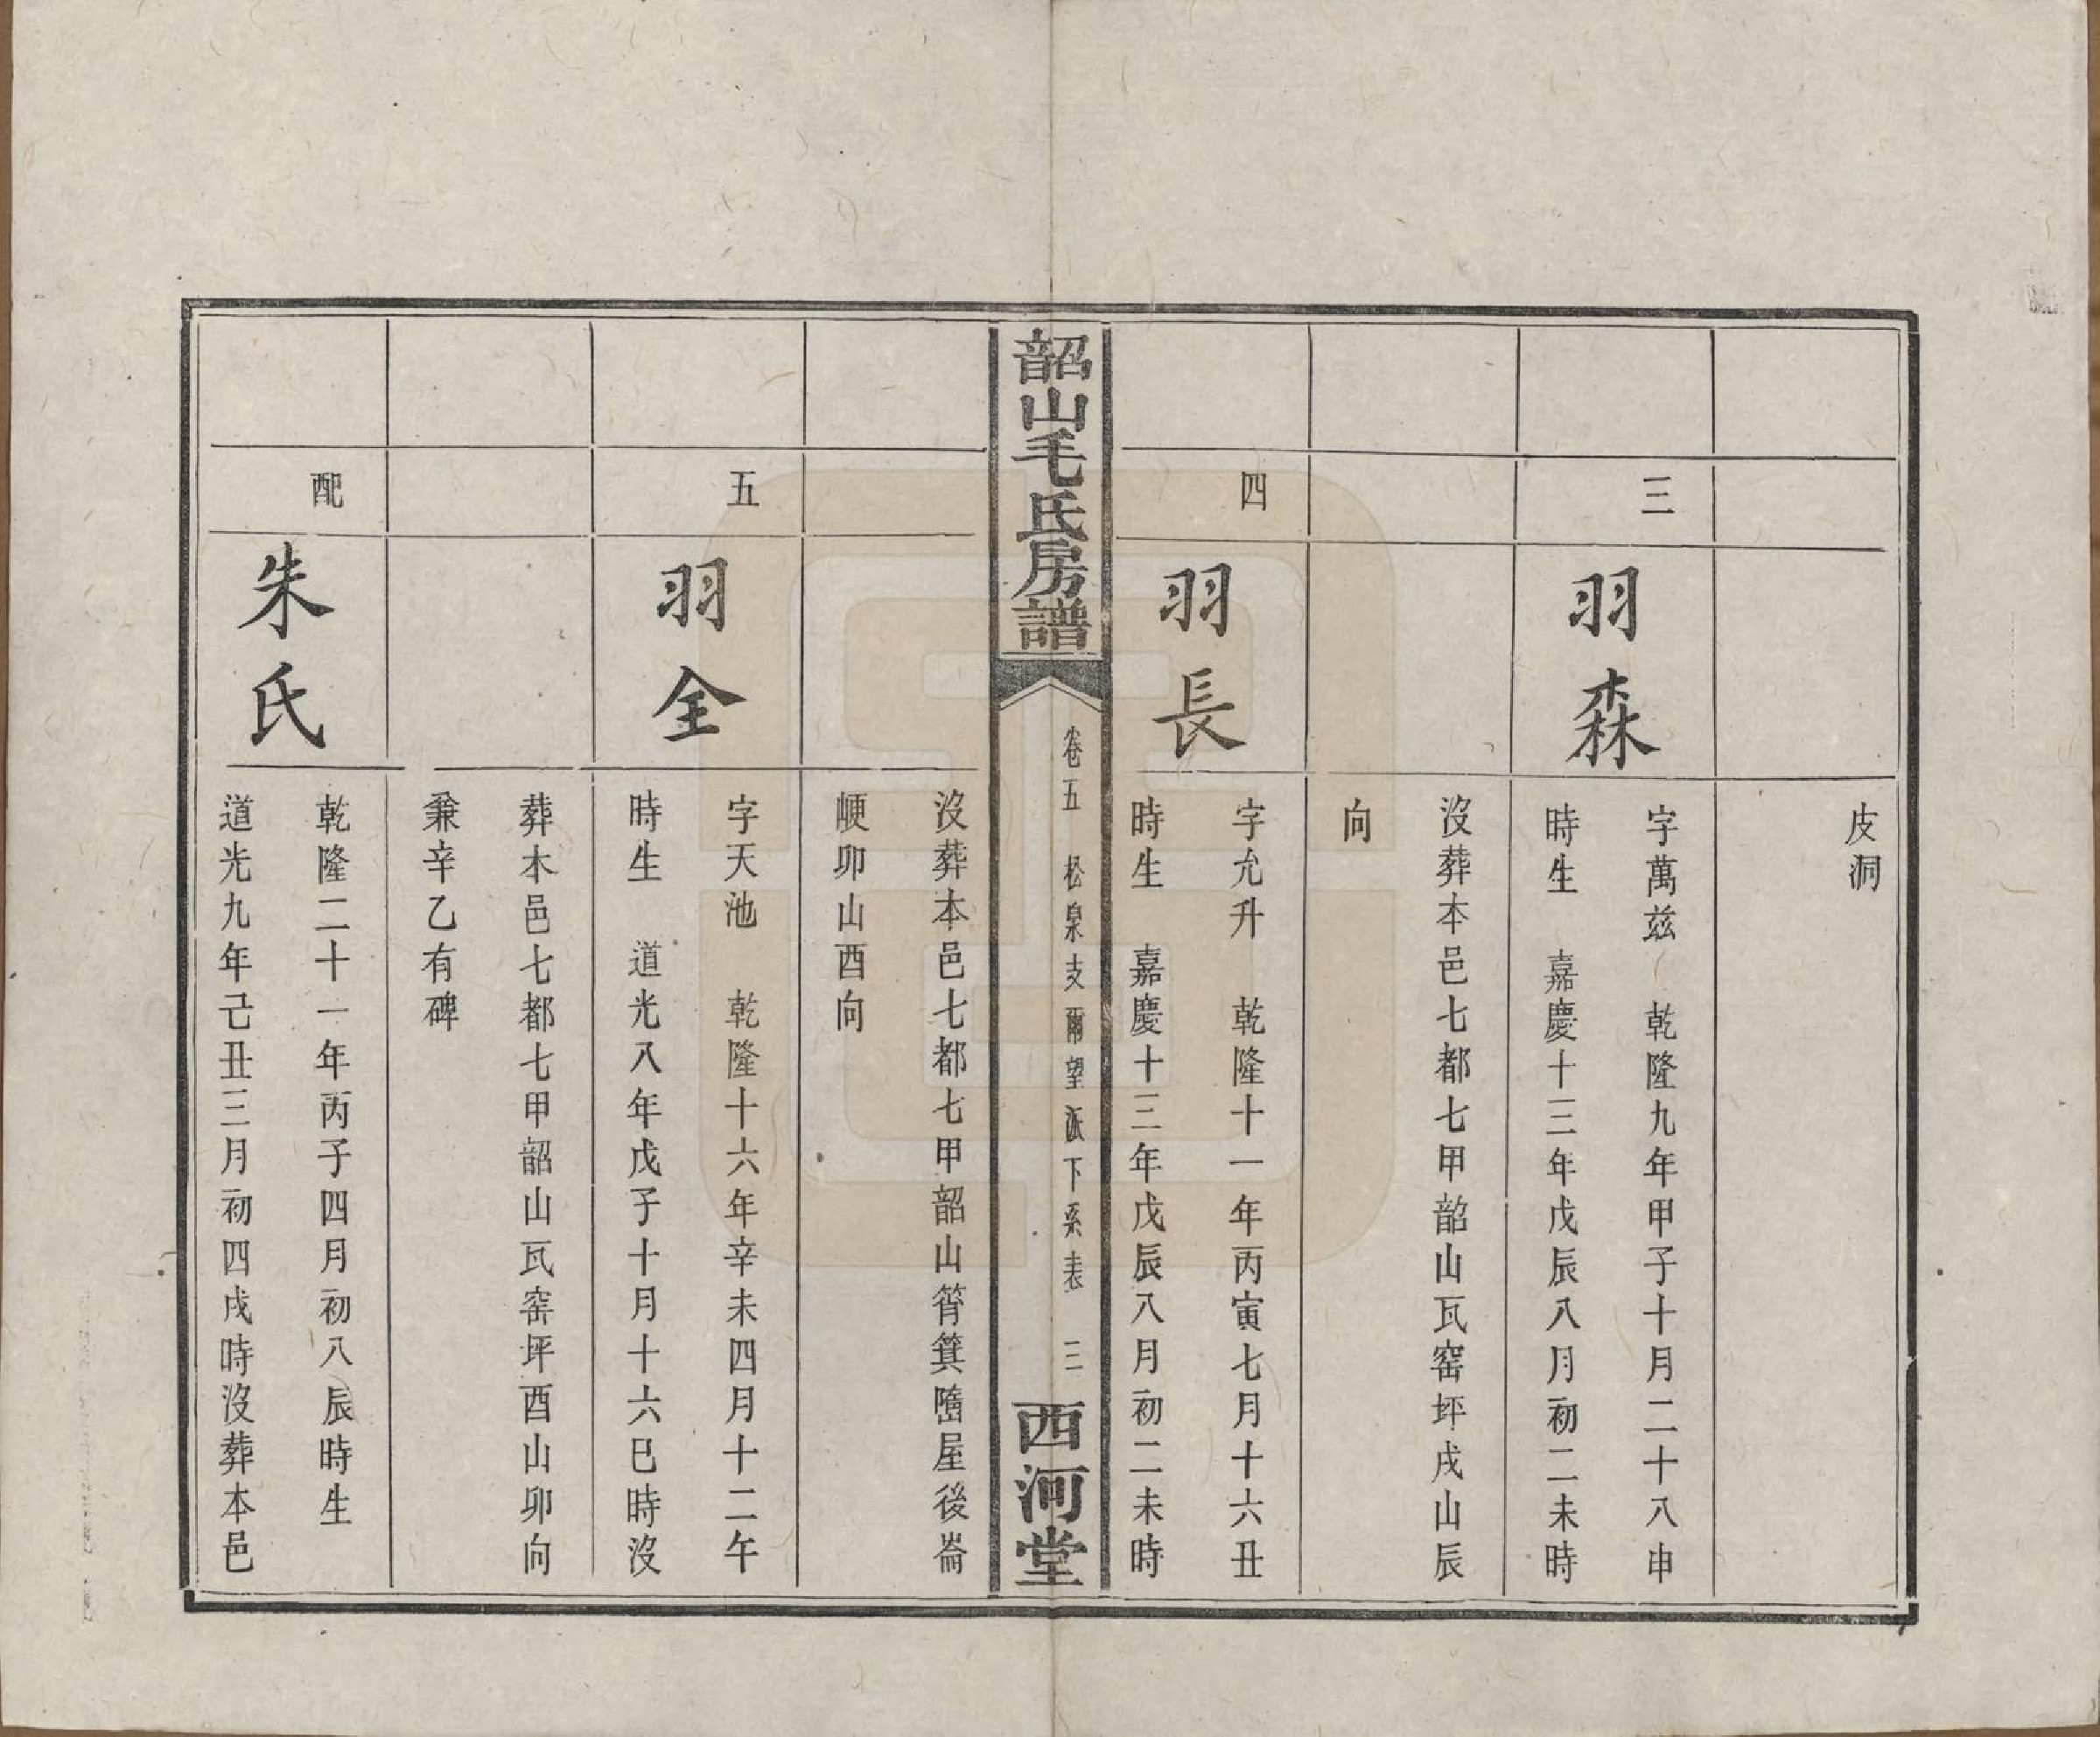 皮洞
三
羽森
字萬兹 乾隆九年甲子十月二十八申
時生 嘉慶十三年戊辰八月初二未時
沒葬本邑七都七甲韶山瓦窰坪戌山辰
向
四
羽長
字允升 乾隆十一年丙寅七月十六丑
時生 嘉慶十三年戊辰八月初二未時
韶山毛氏房譜
卷五 松泉支爾望派下系表 三
西河堂
沒葬本邑七都七甲韶山筲箕隝屋後崙
㟰卯山酉向
五
羽全
字天池 乾隆十六年辛未四月十二午
時生 道光八年戊子十月十六巳時沒
葬木邑七都七甲韶山瓦窰坪酉山卯向
兼辛乙有碑
配
朱氏
乾隆二十一年丙子四月初八辰時生
道光九年己丑三月初四戌時沒葬本邑